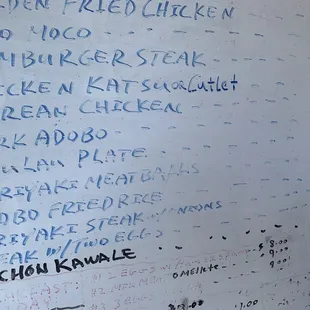 DEN FRIED CHICKEN
O MOCO
MBURGER STEAK
ICKEN KATSU OR Cutlet
REAN CHICKEN
RK ADOBO
LAU PLATE
RIYAKI MEATBALLS
OBO FRIED RICE
RIYAKI STEAK W/ONIONS
EAK W/TWO EGGS
CHON KAWALE
$ 8.00
OMELETE 9.00
9.00